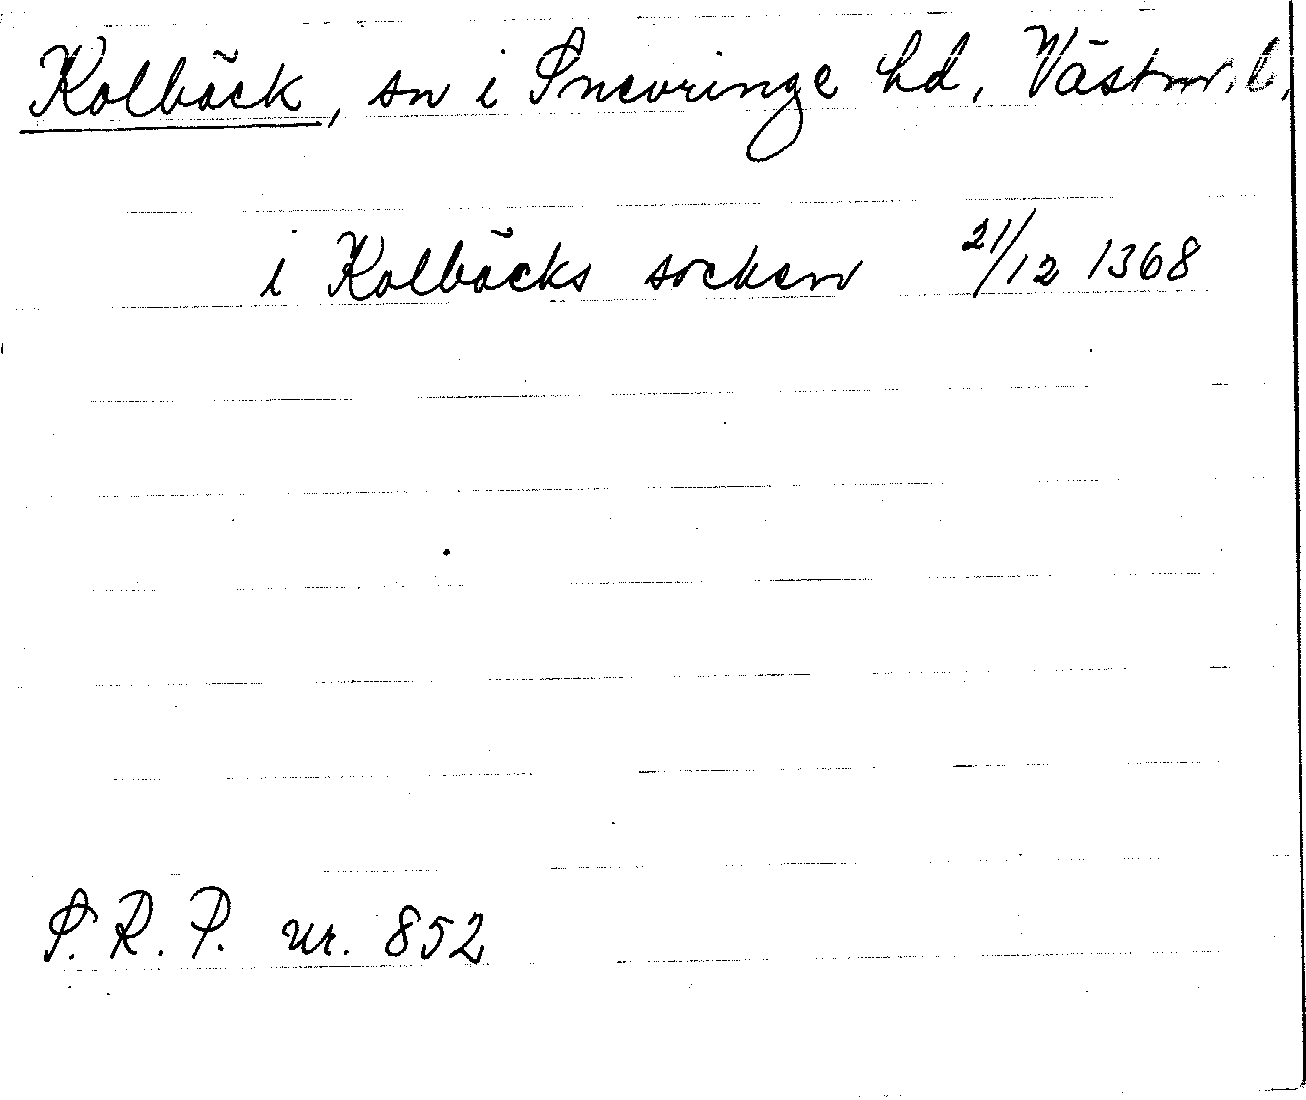 Kolbäck, sn i Snevringe hd, Västm. l.
i Kolbäcks socken 21/12 1368
S. R. P. nr. 852